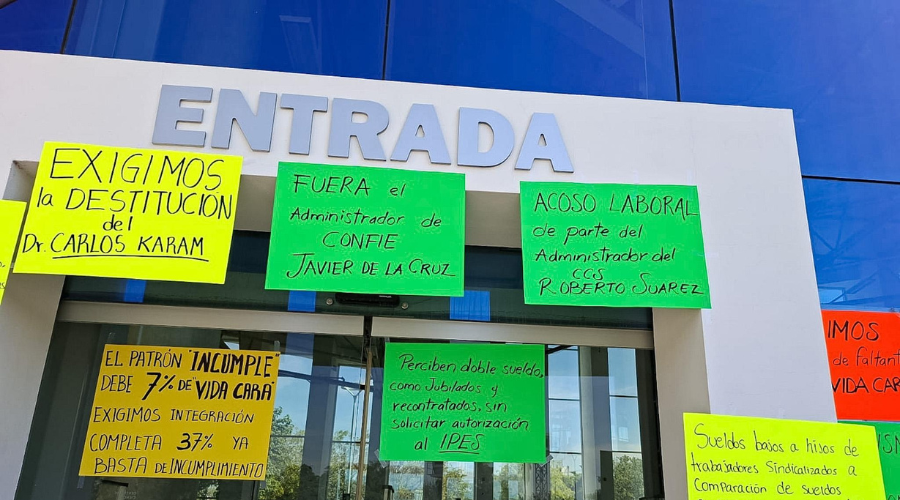 ENTRADA
EXIGIMOS
la DESTITUCION
del
Dr. CARLOS KARAM
FUERA el
Administrador de
CONFIE
JAVIER DE LA CRUZ
ACOSO LABORAL
de parte del
Administrador del
CCS
ROBERTO SUAREZ
EL PATRÓN "INCUMPLE"
DEBE 7% DE VIDA CARA
EXIGIMOS INTEGRACIÓN
COMPLETA 37% YA
BASTA DE INCUMPLIMIENTO
Perciben doble sueldo,
como Jubilados y
recontratados, sin
solicitar autorización
al IPES
IMOS
de faltant
VIDA CAR
Sueldos bajos a hijos de
trabajadores Sindicalizados a
Comparación de sueldos